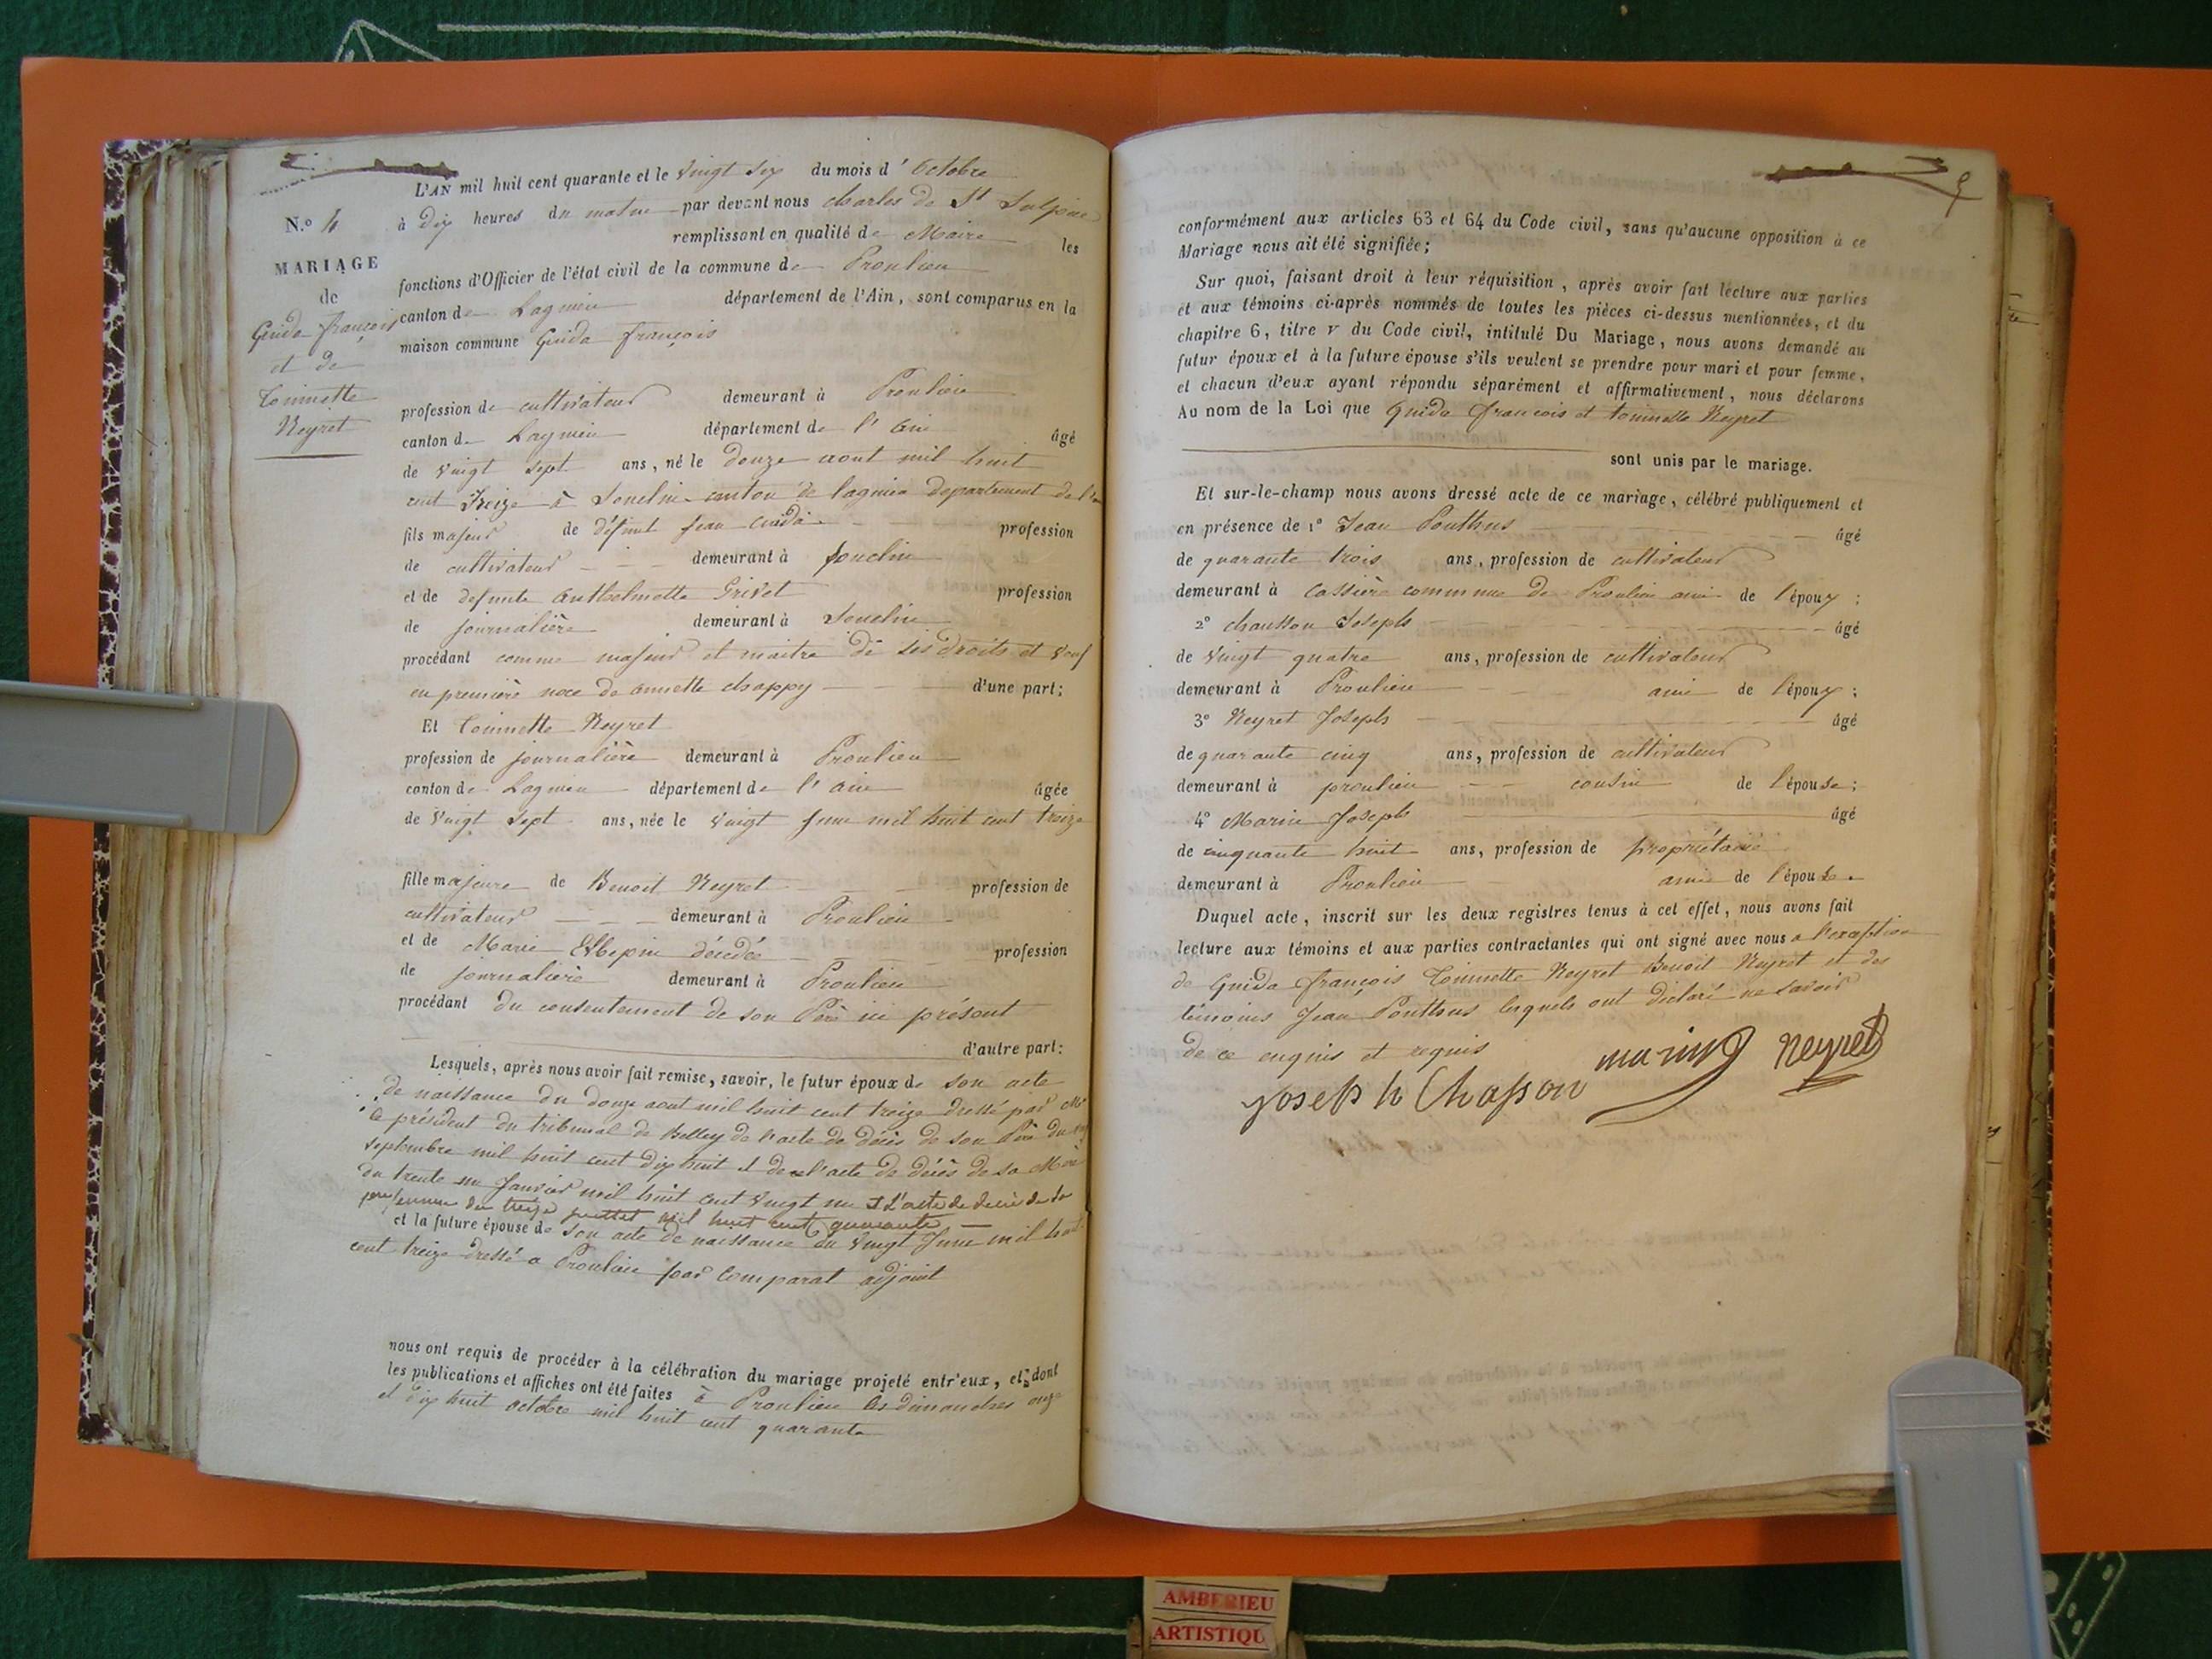 N.o 4
MARIAGE
de
Guida françois
et de
Toinnette
Neyret
L'AN mil huit cent quarante et le vingt six du mois d' Octobre
à dix heures du matin par devant nous charles de St Sulpice
remplissant en qualité de Maire les
fonctions d'Officier de l'état civil de la commune de Proulieu
canton de Lagnieu département de l'Ain, sont comparus en la
maison commune Guida françois
profession de cultivateur demeurant à Proulieu
canton de Lagnieu département de l'ain âgé
de vingt sept ans, né le douze aout mil huit
cent treize à Souclin canton de lagnieu departement de l'ain
fils majeur de défunt jean Guida profession
de cultivateur demeurant à Souclin
et de defunte Anthelmette Grivet profession
de journalière demeurant à Souclin
procédant comme majeur et maitre de ses droits et veuf
en première noce de annette chappy d'une part;
Et Toinnette Neyret
profession de journalière demeurant à Proulieu
canton de Lagnieu département de l'ain âgée
de vingt sept ans, née le vingt juin mil huit cent treize
fille majeure de Benoit Neyret profession de
cultivateur demeurant à Proulieu
et de Marie décédée profession
de journalière demeurant à Proulieu
procédant du consentement de son Père ici présent
d'autre part:
Lesquels, après nous avoir fait remise, savoir, le futur époux de son acte
de naissance du douze aout mil huit cent treize dressé par Mr
le président du tribunal de Belley de l'acte de décès de son Père du
septembre mil huit cent dix huit et de l'acte de décès de sa Mère
du trente un Janvier mil huit cent vingt un et l'acte de décès de sa
femme du treize juillet mil huit cent quarante
et la future épouse de son acte de naissance du vingt Juin mil huit
cent treize dressé a Proulieu par Comparat adjoint
nous ont requis de procéder à la célébration du mariage projeté entr'eux, et dont
les publications et affiches ont été faites à Proulieu les dimanches onze
et dix huit octobre mil huit cent quarante
conformément aux articles 63 et 64 du Code civil, sans qu'aucune opposition à ce
Mariage nous ait été signifiée;
Sur quoi, faisant droit à leur réquisition, après avoir fait lecture aux parties
et aux témoins ci-après nommés de toutes les pièces ci-dessus mentionnées, et du
chapitre 6, titre v du Code civil, intitulé Du Mariage, nous avons demandé au
futur époux et à la future épouse s'ils veulent se prendre pour mari et pour femme,
et chacun d'eux ayant répondu séparément et affirmativement, nous déclarons
Au nom de la Loi que Guida françois et toinnette Neyret
sont unis par le mariage.
Et sur-le-champ nous avons dressé acte de ce mariage, célébré publiquement et
en présence de 1º Jean Ponthus âgé
de quarante trois ans, profession de cultivateur
demeurant à cassière commune de Proulieu ami de l'époux;
2º chausson Joseph âgé
de vingt quatre ans, profession de cultivateur
demeurant à Proulieu ami de l'époux;
3º Neyret Joseph âgé
de quarante cinq ans, profession de cultivateur
demeurant à proulieu cousin de l'épouse;
4º Marin Joseph âgé
de cinquante huit ans, profession de propriétaire
demeurant à Proulieu ami de l'épouse.
Duquel acte, inscrit sur les deux registres tenus à cet effet, nous avons fait
lecture aux témoins et aux parties contractantes qui ont signé avec nous a l'exception
de Guida françois Toinnette Neyret Benoit Neyret et des
témoins Jean Ponthus lesquels ont déclaré ne savoir
de ce enquis et requis
marin Neyret
joseph Chasson
AMBERIEU
ARTISTIQU